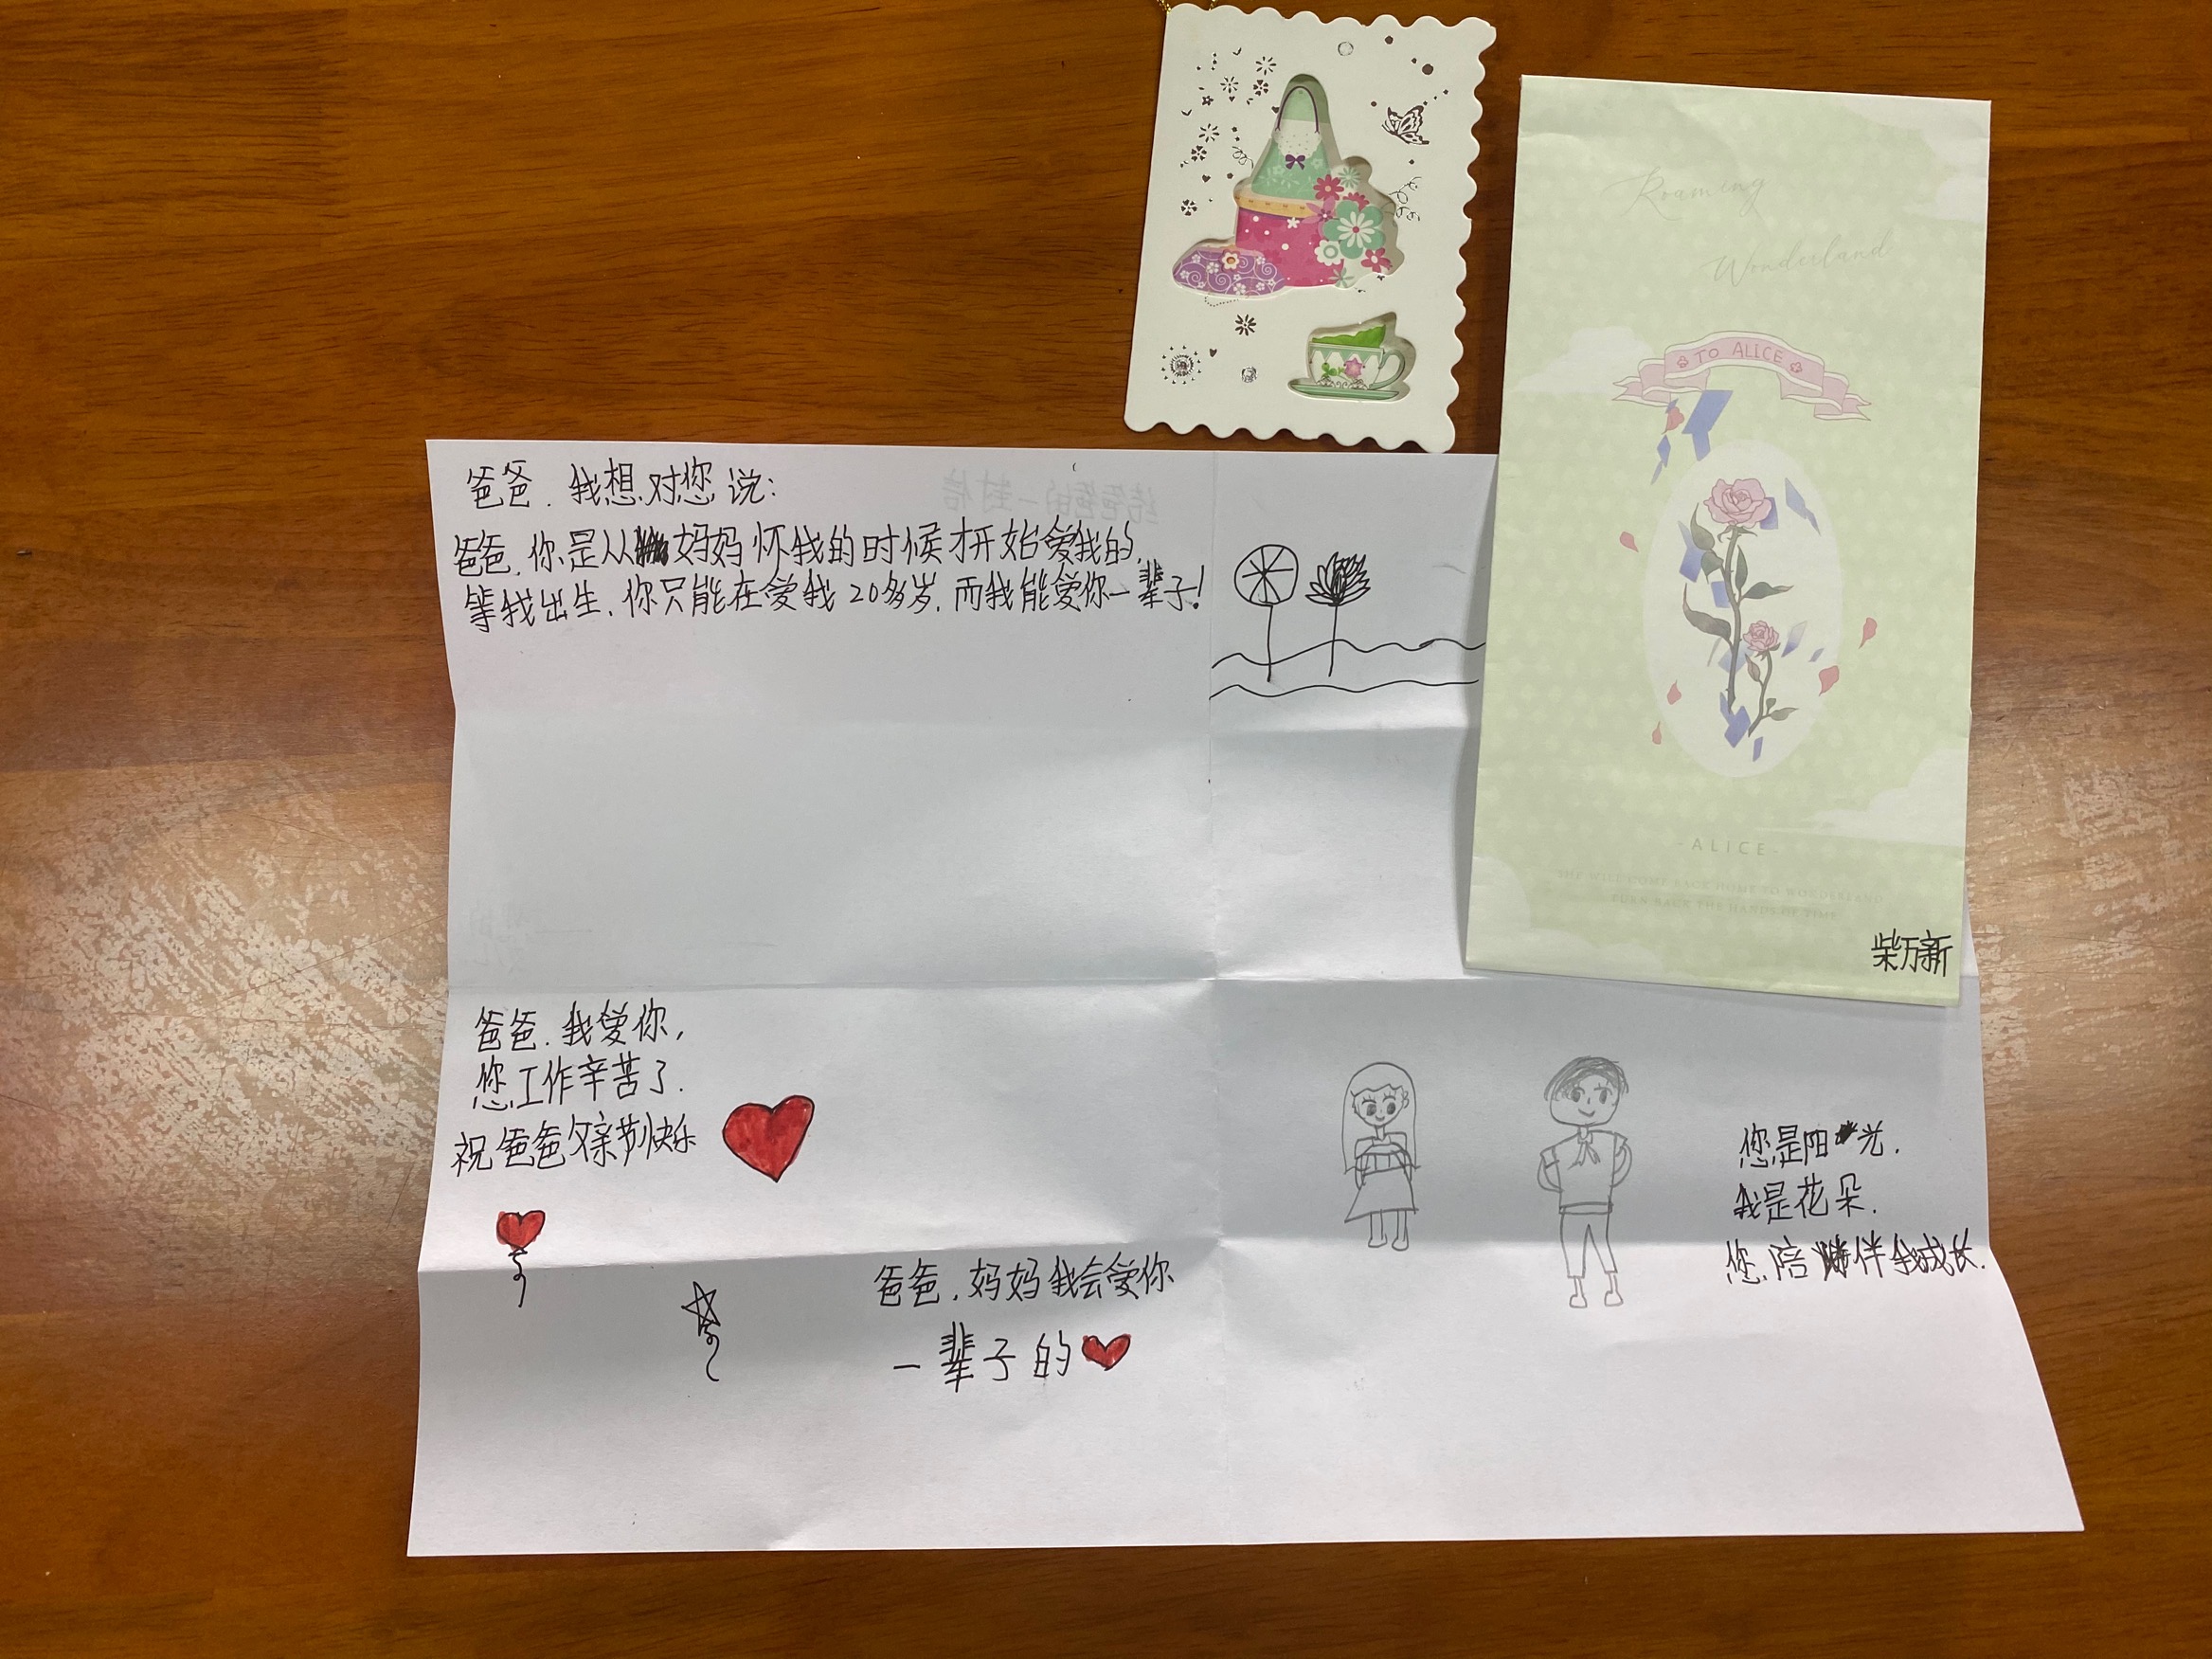 Roaming
Wonderland
TO ALICE
- ALICE -
SHE WILL COME BACK HOME TO WONDERLAND
TURN BACK THE HANDS OF TIME
柴万新
爸爸.我想对您说:
爸爸.你是从妈妈怀我的时候才开始爱我的.
等我出生.你只能在爱我20多岁.而我能爱你一辈子!
爸爸.我爱你,
您工作辛苦了.
祝爸爸父亲节快乐
爸爸.妈妈我会爱你
一辈子的
您是阳光.
我是花朵.
您陪伴我成长.
给爸爸的一封信